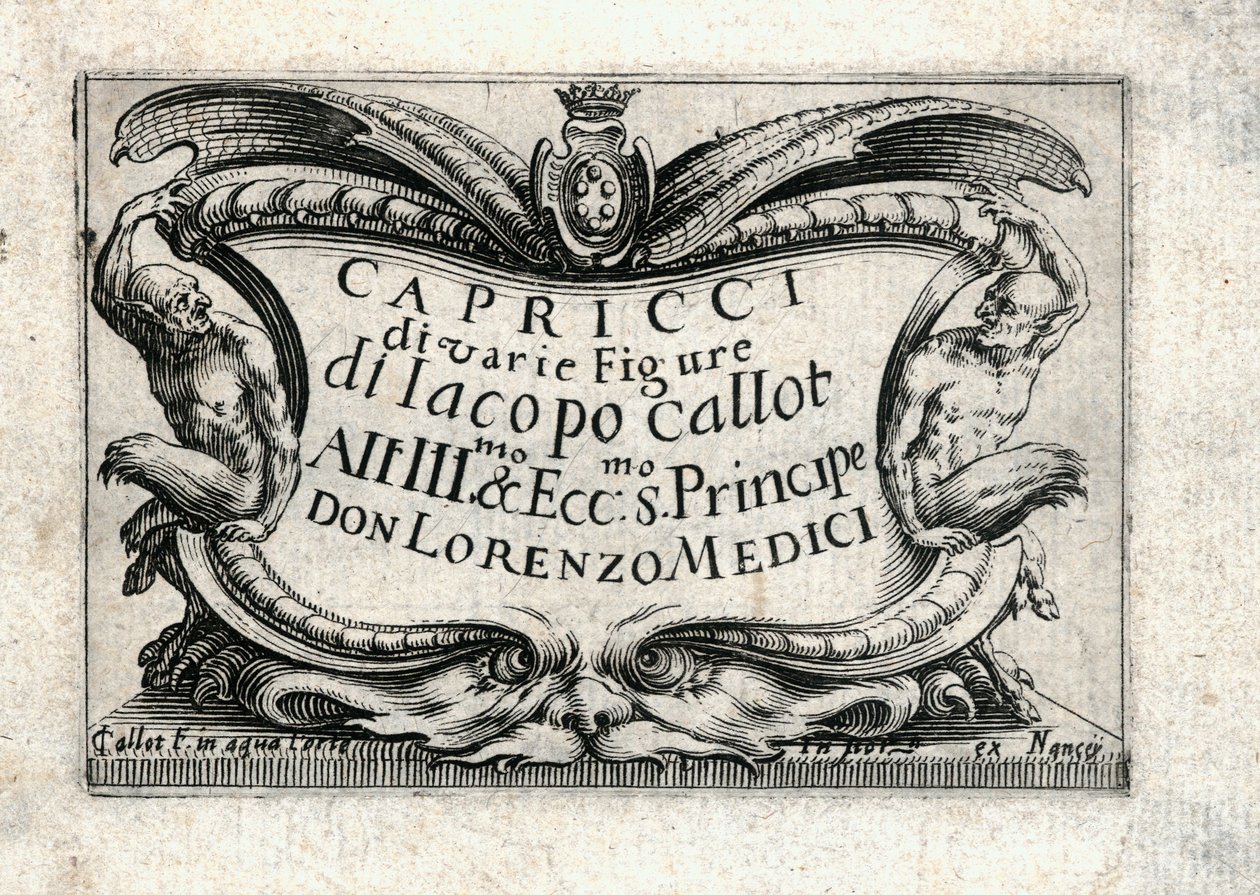 CAPRICCI
di varie Figure
di Iacopo Callot
All Ill.mo & Ecc:mo S. Principe
DON LORENZO MEDICI
Callot F. in aqua forte
In fior.a ex Nancey